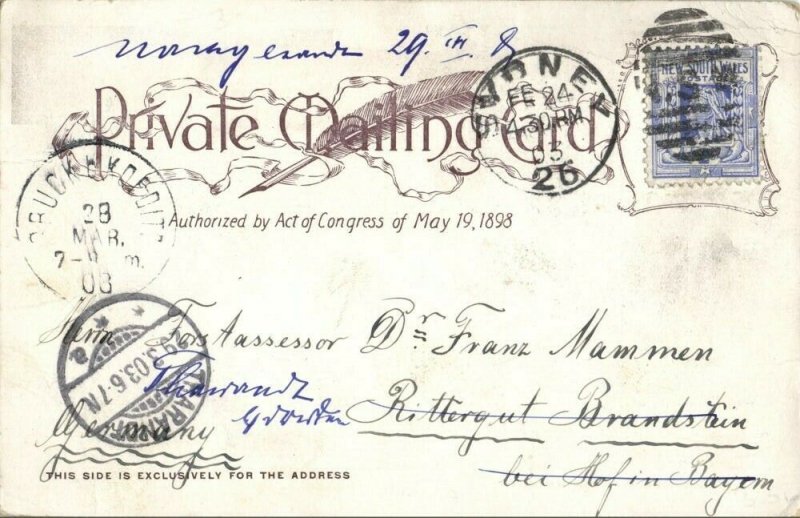 29. III. 8
NEW SOUTH WALES
POSTAGE
SYDNEY
FE 24
4.30 PM
03
26
Private Mailing Card
Authorized by Act of Congress of May 19, 1898
28
MAR.
7-8 m.
03
Herrn Forstassessor Dr. Franz Mammen
29.3.03.6-7N.
THARANDT
a
Tharandt
Rittergut Brandstein
Germany Dresden
bei Hof in Bayern
THIS SIDE IS EXCLUSIVELY FOR THE ADDRESS